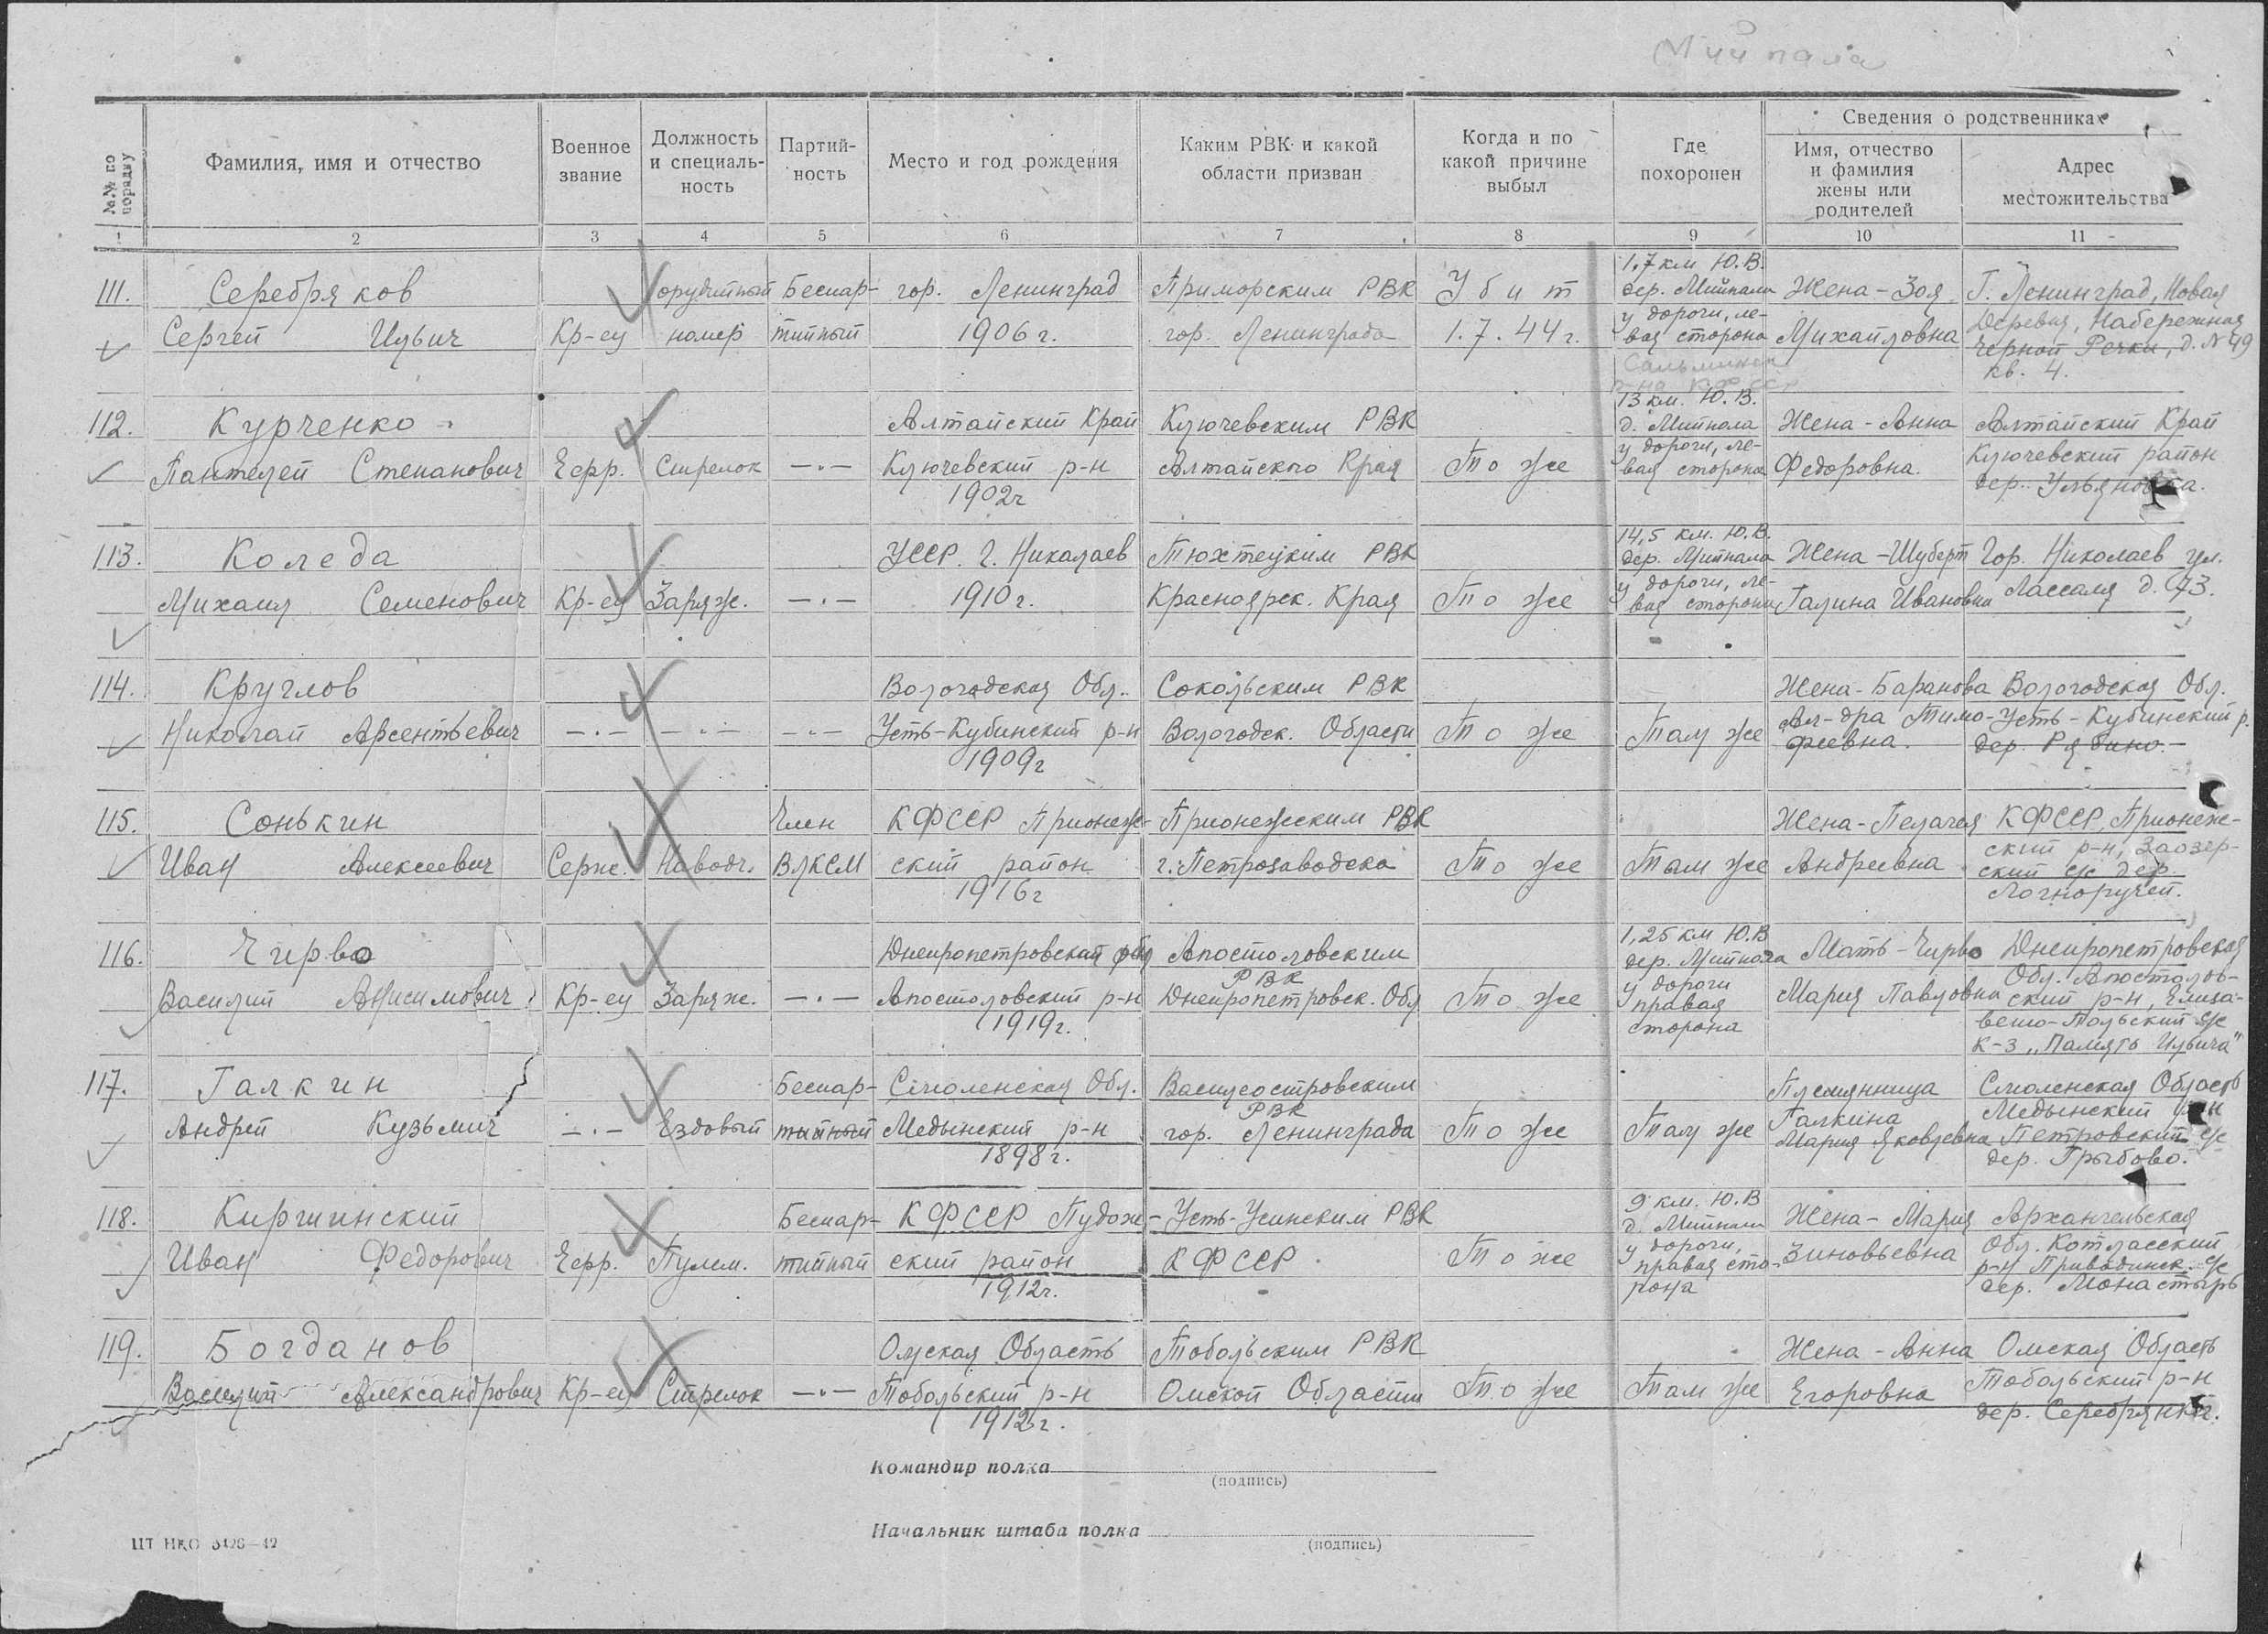 Мийпала
№№ по порядку
Фамилия, имя и отчество
Военное звание
Должность и специаль-ность
Партий-ность
Место и год рождения
Каким РВК и какой области призван
Когда и по какой причине выбыл
Где похоронен
Сведения о родственниках
Имя, отчество и фамилия жены или родителей
Адрес местожительства
1 2 3 4 5 6 7 8 9 10 11
111. Серебряков
Сергей Ильич
Кр-ец
орудийный номер
Беспар-тийный
гор. Ленинград
1906 г.
Приморским РВК
гор. Ленинграда
Убит
1.7.44 г.
1,7 км Ю.В.
дер. Мийпала
у дороги, ле-
вая сторона
Жена - Зоя
Михайловна
Г. Ленинград, Новая
Деревня, Набережная
Черной Речки, д. N 49
кв. 4.
112. Курченко
Пантелей Степанович
Ефр.
Стрелок
—·—
Алтайский Край
Ключевский р-н
1902 г
Ключевским РВК
Алтайского Края
То же
13 км. Ю.В.
д. Мийпала
у дороги, ле-
вая сторона
Жена - Анна
Федоровна.
Алтайский Край
Ключевский район
дер. Ульяновка.
113. Коледа
Михаил Семенович
Кр-ец
Заряж.
—·—
УССР. г. Николаев
1910 г.
Тюхтецким РВК
Красноярск. Края
То же
14,5 км. Ю.В.
дер. Мийпала
у дороги, ле-
вая сторона
Жена - Шуберт
Галина Ивановна
Гор. Николаев ул.
Лассаля д. 73.
114. Круглов
Николай Арсентьевич
—·—
—·—
—·—
Вологодская Обл.
Усть-Кубинский р-н
1909 г
Сокольским РВК
Вологодск. Области
То же
Там же
Жена - Баранова
Ал-дра Тимо-
феевна.
Вологодская Обл.
Усть-Кубинский р.
дер. Рябино.
115. Сонькин
Иван Алексеевич
Серж.
Наводч.
Член
ВЛКСМ
КФССР Прионеж-
ский район
1916 г
Прионежским РВК
г. Петрозаводска
То же
Там же
Жена - Пелагея
Андреевна
КФССР, Прионеж-
ский р-н, Заозер-
ский с/с дер.
Логморучей.
116. Чирво
Василий Анисимович
Кр-ец
Заряж.
—·—
Днепропетровская обл
Апостоловский р-н
1919 г.
Апостоловским
РВК
Днепропетровск. Обл
То же
1,25 км Ю.В
дер. Мийпала
у дороги
правая
сторона
Мать - Чирво
Мария Павловна
Днепропетровская
Обл. Апостолов-
ский р-н, Елиза-
вето-Польский с/с
к-з „Память Ильича"
117. Галкин
Андрей Кузьмич
—·—
Ездовый
Беспар-
тийный
Смоленская Обл.
Медынский р-н
1898 г.
Василеостровским
РВК
гор. Ленинграда
То же
Там же
Племянница
Галкина
Мария Яковлевна
Смоленская Область
Медынский р-н
Петровский с/с
дер. Грыбово.
118. Киршинский
Иван Федорович
Ефр.
Пулем.
Беспар-
тийный
КФССР Пудож-
ский район
1912 г.
Усть-Усинским РВК
КФССР
То же
9 км. Ю.В
д. Мийпала
у дороги,
правая сто-
рона
Жена - Мария
Зиновьевна
Архангельская
Обл. Котласский
р-н Приводинск. с/с
дер. Монастырь
119. Богданов
Василий Александрович
Кр-ец
Стрелок
—·—
Омская Область
Тобольский р-н
1912 г.
Тобольским РВК
Омской Области
То же
Там же
Жена - Анна
Егоровна
Омская Область
Тобольский р-н
дер. Серебрянка.
Командир полка
(подпись)
Начальник штаба полка
(подпись)